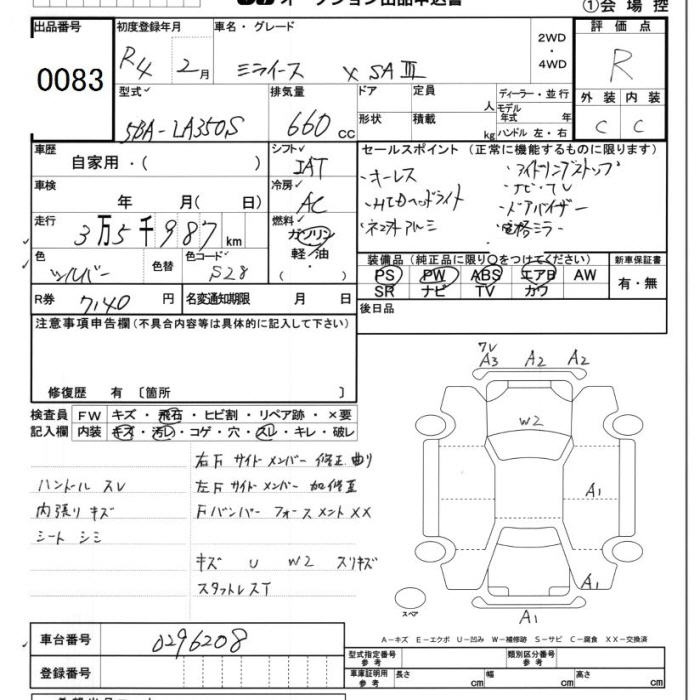 オークション出品申込書
①会場控
出品番号 初度登録年月 車名・グレード 評価点
0083
R4 2月 ミライース X SAⅢ 2WD・4WD R
型式 排気量 ドア 定員 人 ディーラー・並行 外装 内装
モデル年式 年
5BA-LA350S 660cc 形状 積載 kg ハンドル 左・右 C C
車歴 シフト セールスポイント (正常に機能するものに限ります)
自家用・( ) IAT
・キーレス ・アイドリングストップ
車検 冷房 ・ナビ・TV
年 月( 日) AC ・HLDヘッドライト ・ドアバイザー
走行 燃料
3万5千987km ガソリン ネオオトアルミ ・電格ミラー
色 色替 色コード 軽油・( )
シルバー S28
装備品(純正品に限り○をつけてください) 新車保証書
PS PW ABS エアB AW 有・無
SR ナビ TV カワ
R券 7140円 名変通知期限 月 日
後日品
注意事項申告欄(不具合内容等は具体的に記入して下さい)
修復歴 有 〔箇所 〕
検査員記入欄 FW キズ・飛石・ヒビ割・リペア跡・×要
内装 キズ・汚レ・コゲ・穴・スレ・キレ・破レ
右F サイドメンバー 修正 曲り
ハンドル スレ 左F サイドメンバー 加修正
内張り キズ Fバンパー フォースメント XX
シート シミ
キズ U W2 スリキズ
スタットレスT
フレ
A3 A2 A2
W2
A1
A1
A1
スペア
A-キズ E-エクボ U-凹み W-補修跡 S-サビ C-腐食 XX-交換済
車台番号 0296208
登録番号
型式指定番号 参考 類別区分番号 参考
車庫証明用 参考 長さ cm 幅 cm 高さ cm